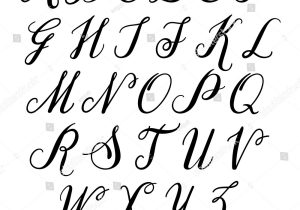 G H I J K L
M N O P Q
R S T U V
W X Y Z